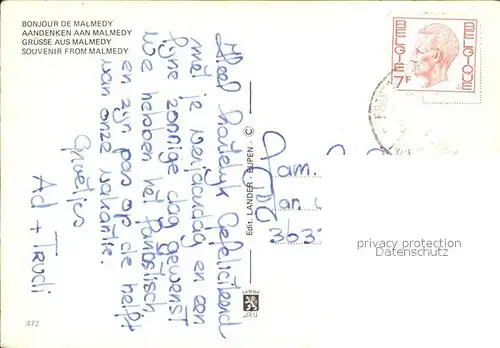 BONJOUR DE MALMEDY
AANDENKEN AAN MALMEDY
GRÜSSE AUS MALMEDY
SOUVENIR FROM MALMEDY
Heel hartelijk gefeliciteerd
met je verjaardag en een
fijne zonnige dag gewenst
We hebben het fantastisch
en zijn pas op de helft
van onze vakantie.
Groetjes
Ad + Trudi
Edit. LANDER - EUPEN - ©
BELGIE
BELGIQUE
7F
Fam.
363
privacy protection
Datenschutz
472